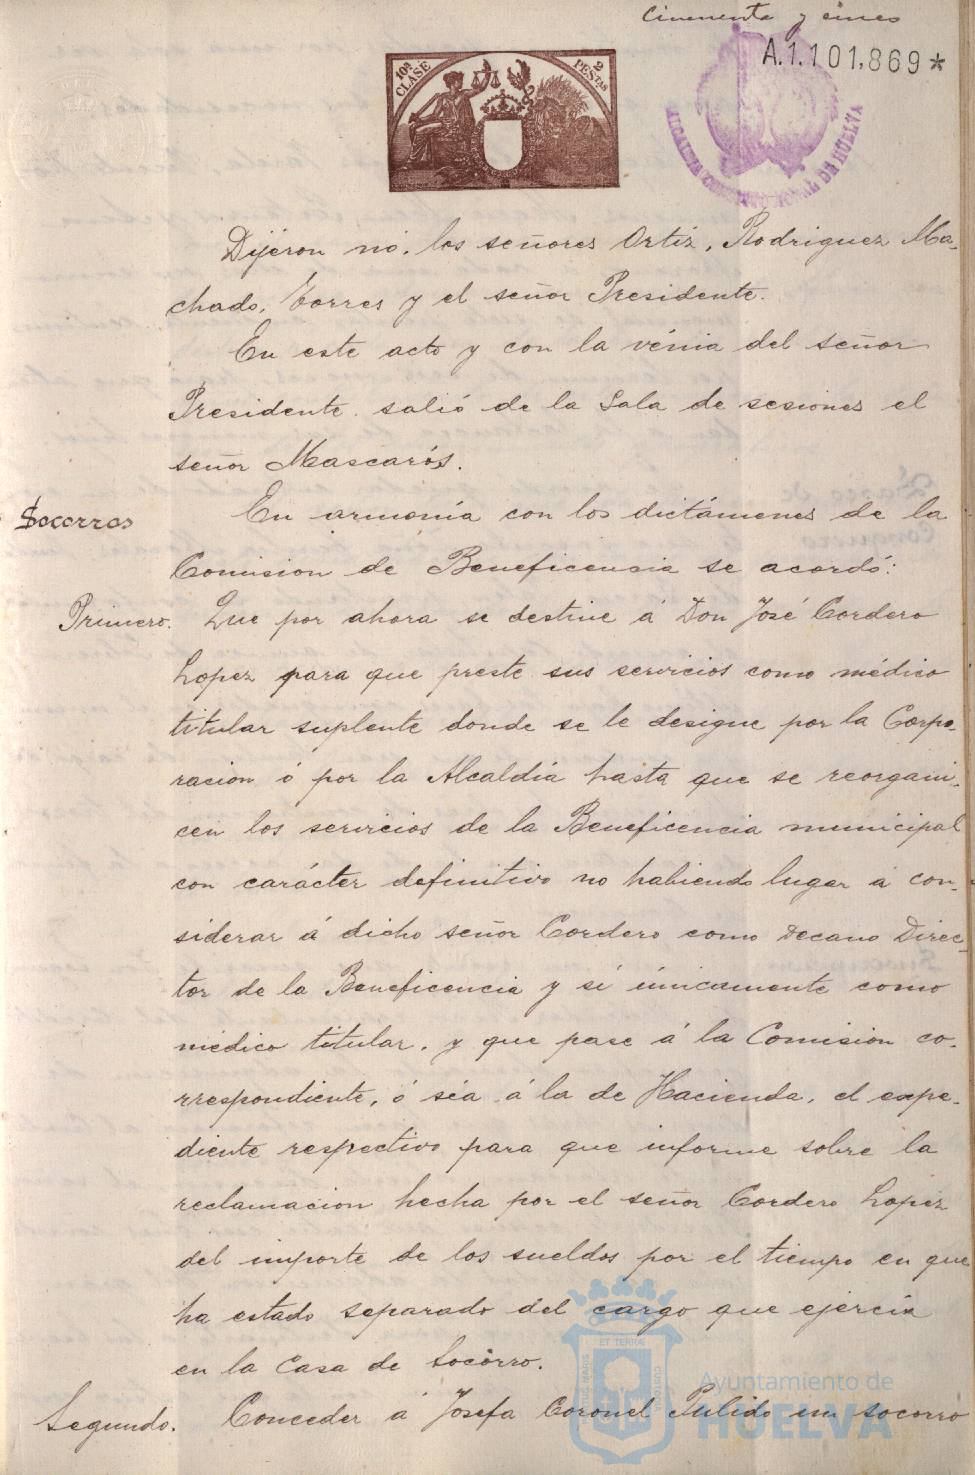 Cincuenta y cinco
A.1.101.869*
10ª CLASE
2 PESTAS
ALCALDIA CONSTITUCIONAL DE HUELVA
Dijeron nó, los señores Ortiz, Rodriguez Ma-
chado, Torres y el señor Presidente.
En este acto y con la vénia del señor
Presidente salió de la Sala de sesiones el
señor Mascarós.
Socorros
En armonía con los dictámenes de la
Comision de Beneficencia se acordó:
Primero. Que por ahora se destine á Don José Cordero
Lopez para que preste sus servicios como médico
titular suplente donde se le designe por la Corpo-
racion ó por la Alcaldía hasta que se reorgani-
cen los servicios de la Beneficencia municipal
con carácter definitivo no habiendo lugar á con-
siderar á dicho señor Cordero como Decano Direc-
tor de la Beneficencia y sí únicamente como
médico titular, y que pase á la Comision co-
rrespondiente, ó séa á la de Hacienda, el expe-
diente respectivo para que informe sobre la
reclamacion hecha por el señor Cordero Lopez
del importe de los sueldos por el tiempo en que
ha estado separado del cargo que ejercía
en la Casa de Socórro.
Segundo. Conceder á Josefa Coronel Pulido un socorro
Ayuntamiento de
HUELVA